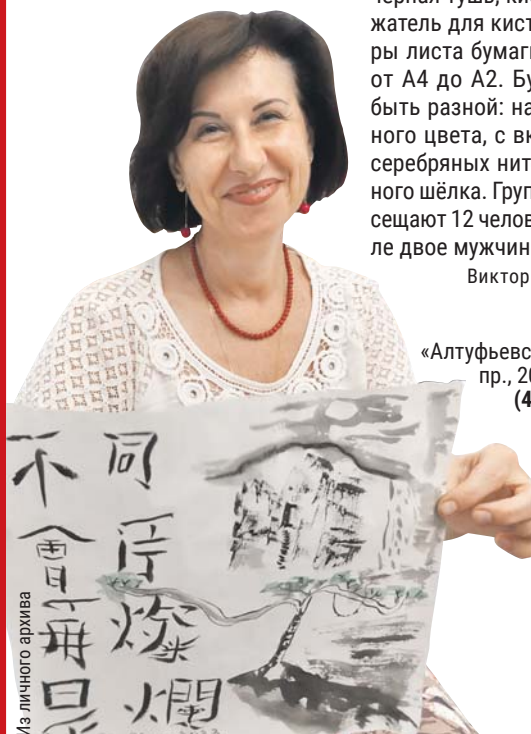 чёрная тушь, ки
жатель для кист
ры листа бумаги
от А4 до А2. Бу
быть разной: на
ного цвета, с вк
серебряных нит
ного шёлка. Груп
сещают 12 челов
ле двое мужчин
Виктор
«Алтуфьевс
пр., 20
(4
同
不
會
再
燦
爛
Из личного архива